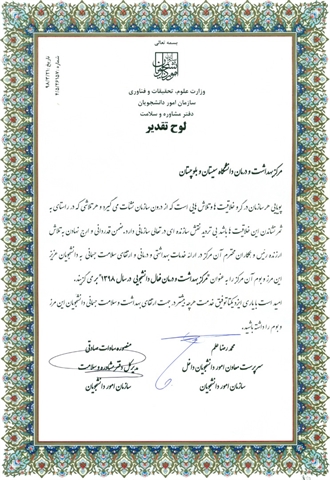 بسمه تعالی
تاریخ: ۹۸/۳/۲۱
شماره: ۲۱۵/۵۴۶۵۷
سازمان امور دانشجویان
وزارت علوم، تحقیقات و فناوری
سازمان امور دانشجویان
دفتر مشاوره و سلامت
لوح تقدیر
مرکز بهداشت و درمان دانشگاه سیستان و بلوچستان
پویایی هر سازمان در گرو خلاقیت ها و تلاش هایی است که از درون سازمان نشأت می گیرد و هر تلاشی که در راستای به
ثمر نشاندن این خلاقیت ها باشد بی تردید نقش سازنده ای در تعالی سازمانی دارد، ضمن قدردانی و ارج نهادن به تلاش
ارزنده رئیس و همکاران محترم آن مرکز در ارائه خدمات بهداشتی و درمانی و ارتقای سلامت جسمانی به دانشجویان عزیز
این مرز و بوم آن مرکز را به عنوان "مرکز بهداشت و درمان فعال دانشجویی در سال ۱۳۹۸" برمی گزیند.
امید است با یاری ایزد یکتا توفیق خدمت هرچه بیشتر در جهت ارتقای بهداشت و سلامت جسمانی دانشجویان این مرز
و بوم را داشته باشید.
محمدرضا علم
سرپرست معاون امور دانشجویان داخل
سازمان امور دانشجویان
منصوره سادات صادقی
مدیرکل دفتر مشاوره و سلامت
سازمان امور دانشجویان